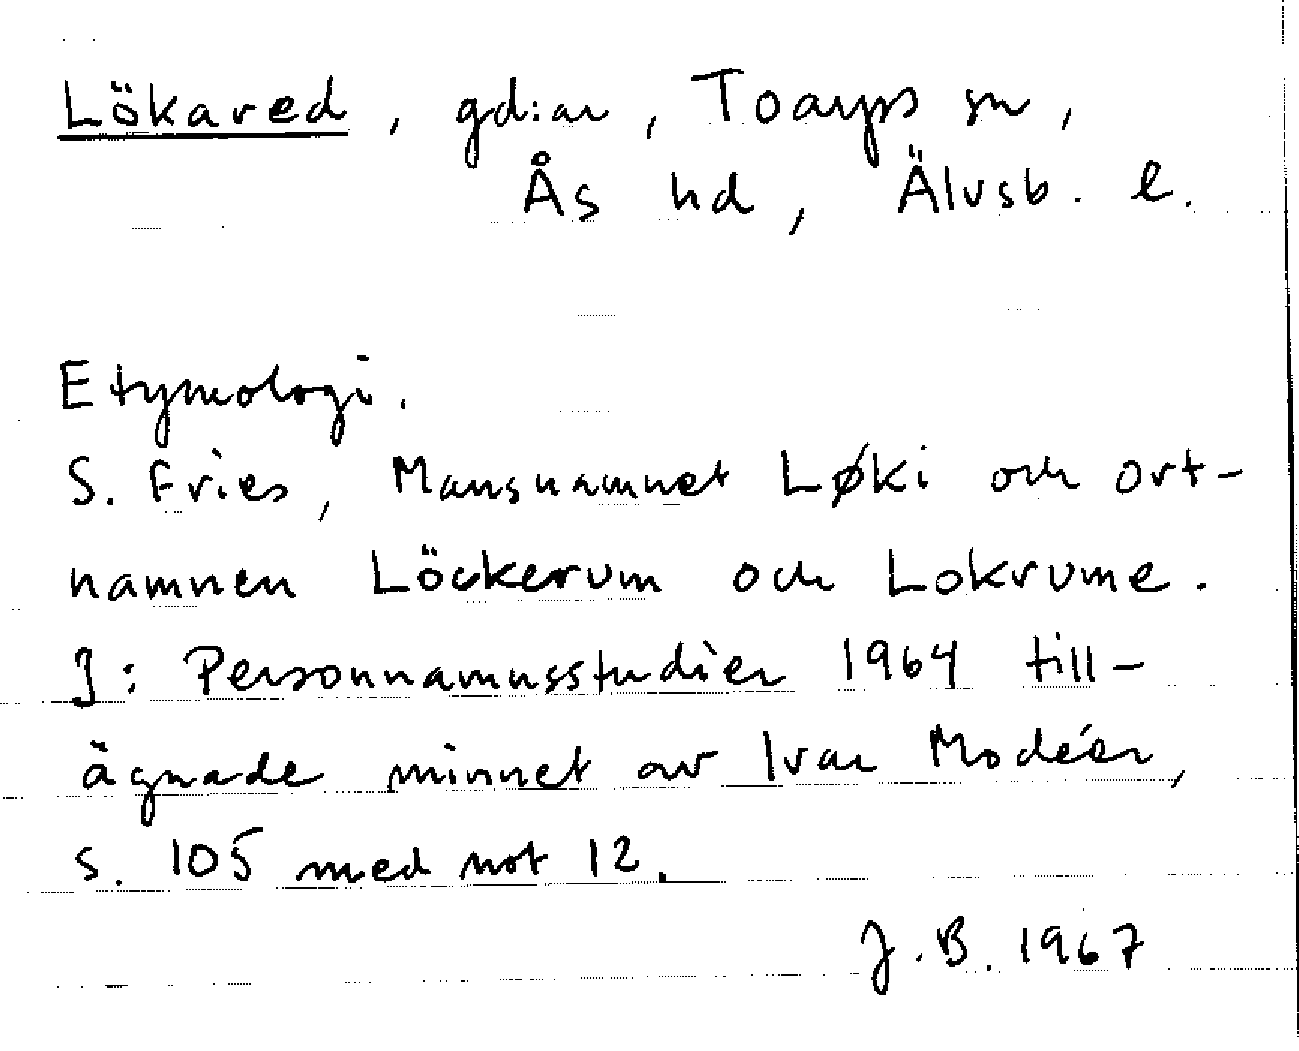 Lökared, gd:ar, Toarps sn,
Ås hd, Älvsb. l.
Etymologi.
S. Fries, Mansnamnet Løki och ort-
namnen Löckerum och Lokrume.
I: Personnamnsstudier 1964 till-
ägnade minnet av Ivar Modéer,
s. 105 med not 12.
J.B. 1967